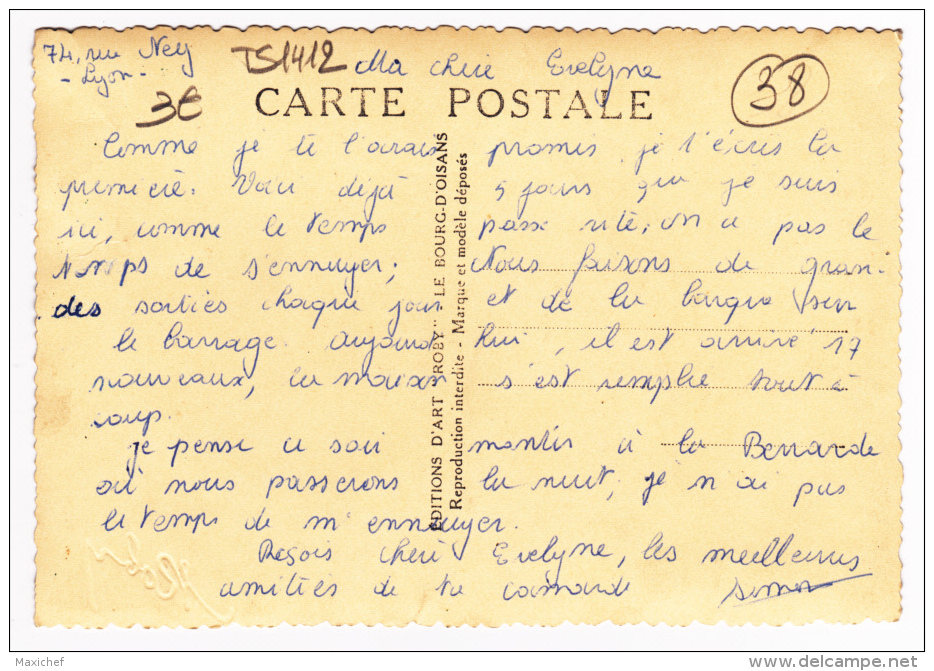 74, rue Ney
- Lyon -
TS1412
Ma chere Evelyne
3€
38
CARTE POSTALE
Comme je te l'avais promis, je t'écris la
première. Voici déjà 5 jours que je suis
ici, comme le temps passe vite, on a pas le
temps de s'ennuyer; Nous faisons de gran-
des sorties chaque jour et de la barque sur
le barrage. Aujourd'hui, il est arrivé 17
nouveaux, la maison s'est remplie tout à
coup.
je pense ce soir monter à la Berrarde
où nous passerons la nuit, je n'ai pas
le temps de m'ennuyer.
Reçois cheri Evelyne, les meilleures
amitiés de ta camarade
EDITIONS D'ART "ROBY" - LE BOURG-D'OISANS
Reproduction interdite - Marque et modèle déposés
Maxichef
www.delcampe.net